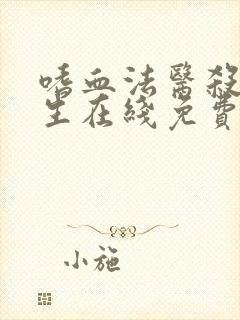 嗜血法醫殺
生在綫免費
小施